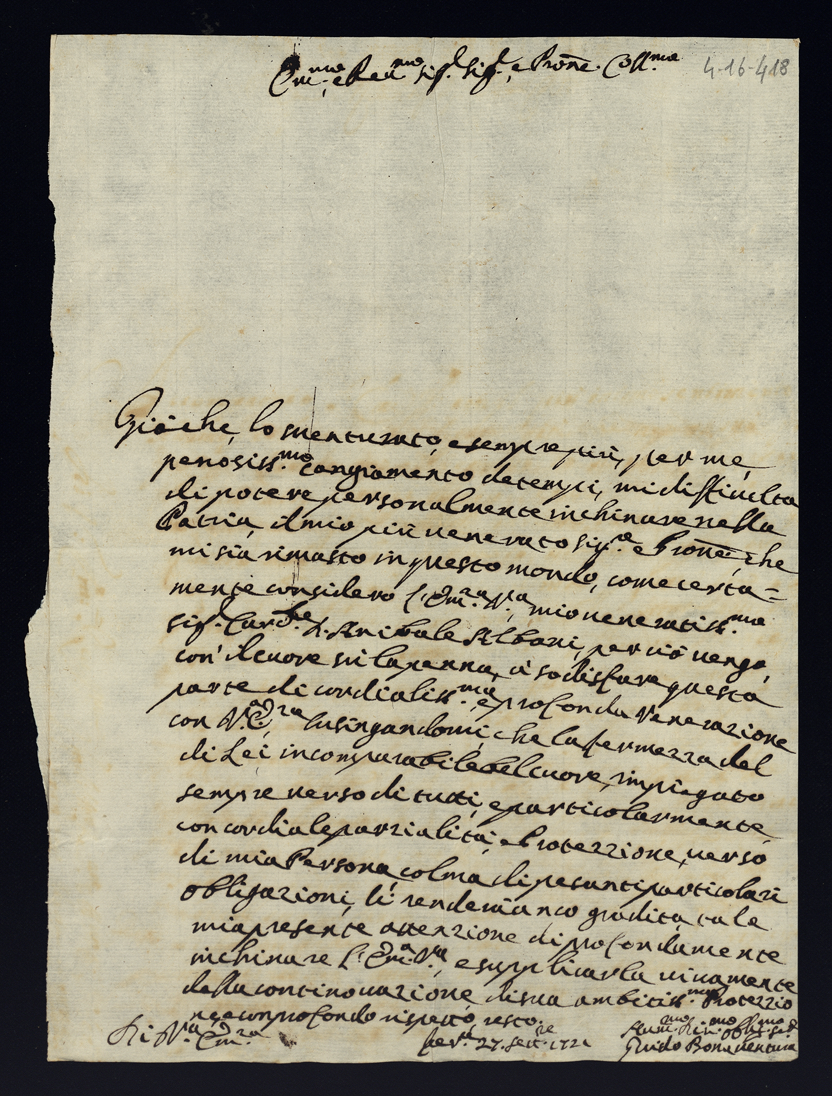 Em.mo e Rev.mo Sig.r Sig.r, e Prone. Coll.mo
4-16-418
Già che, lo suenturato, e sempre più, per me,
penosiss.mo cangiamento de tempi, mi difficulta
di potere personalmente inchinare nella
Patria, il mio più uenerato Sig.re e Prone che
mi sia rimasto in questo mondo, come certa=
mente considero l'Em.za V.a, mio ueneratiss.mo
Sig.r Card.le D. Anibale Albani, perciò uengo,
con' il cuore sù la penna, à sodisfare questa
parte di cordialiss.ma, e profonda Venerazione
con V.a Em.za lusingandomi, che la fermezza del
di Lei incomparabile bel cuore, impiegato
sempre uerso di tutti, e particolarmente,
con cordiale parzialità, e Protezzione, uerso
di mia Persona colma di pesanti particolari
obligazioni, li renderà anco gradita, tale
mia presente attenzione di profondamente
inchinare l'Em.za V.a, e supplicarla uiuamente
della continouazione di sua ambitiss.ma Protezzio
ne, e con profondo rispetto resto.
Di V.a Em.za
27. Sett.re 1721
Hum.mo Di.mo Obl.mo Se.r
Guido Bonauentura